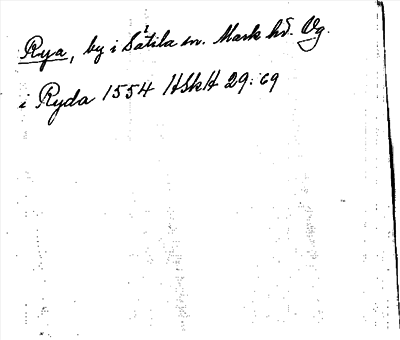 Rya, by i Sätila sn. Mark hd. Vg.
i Ryda 1554 HSkH 29:69